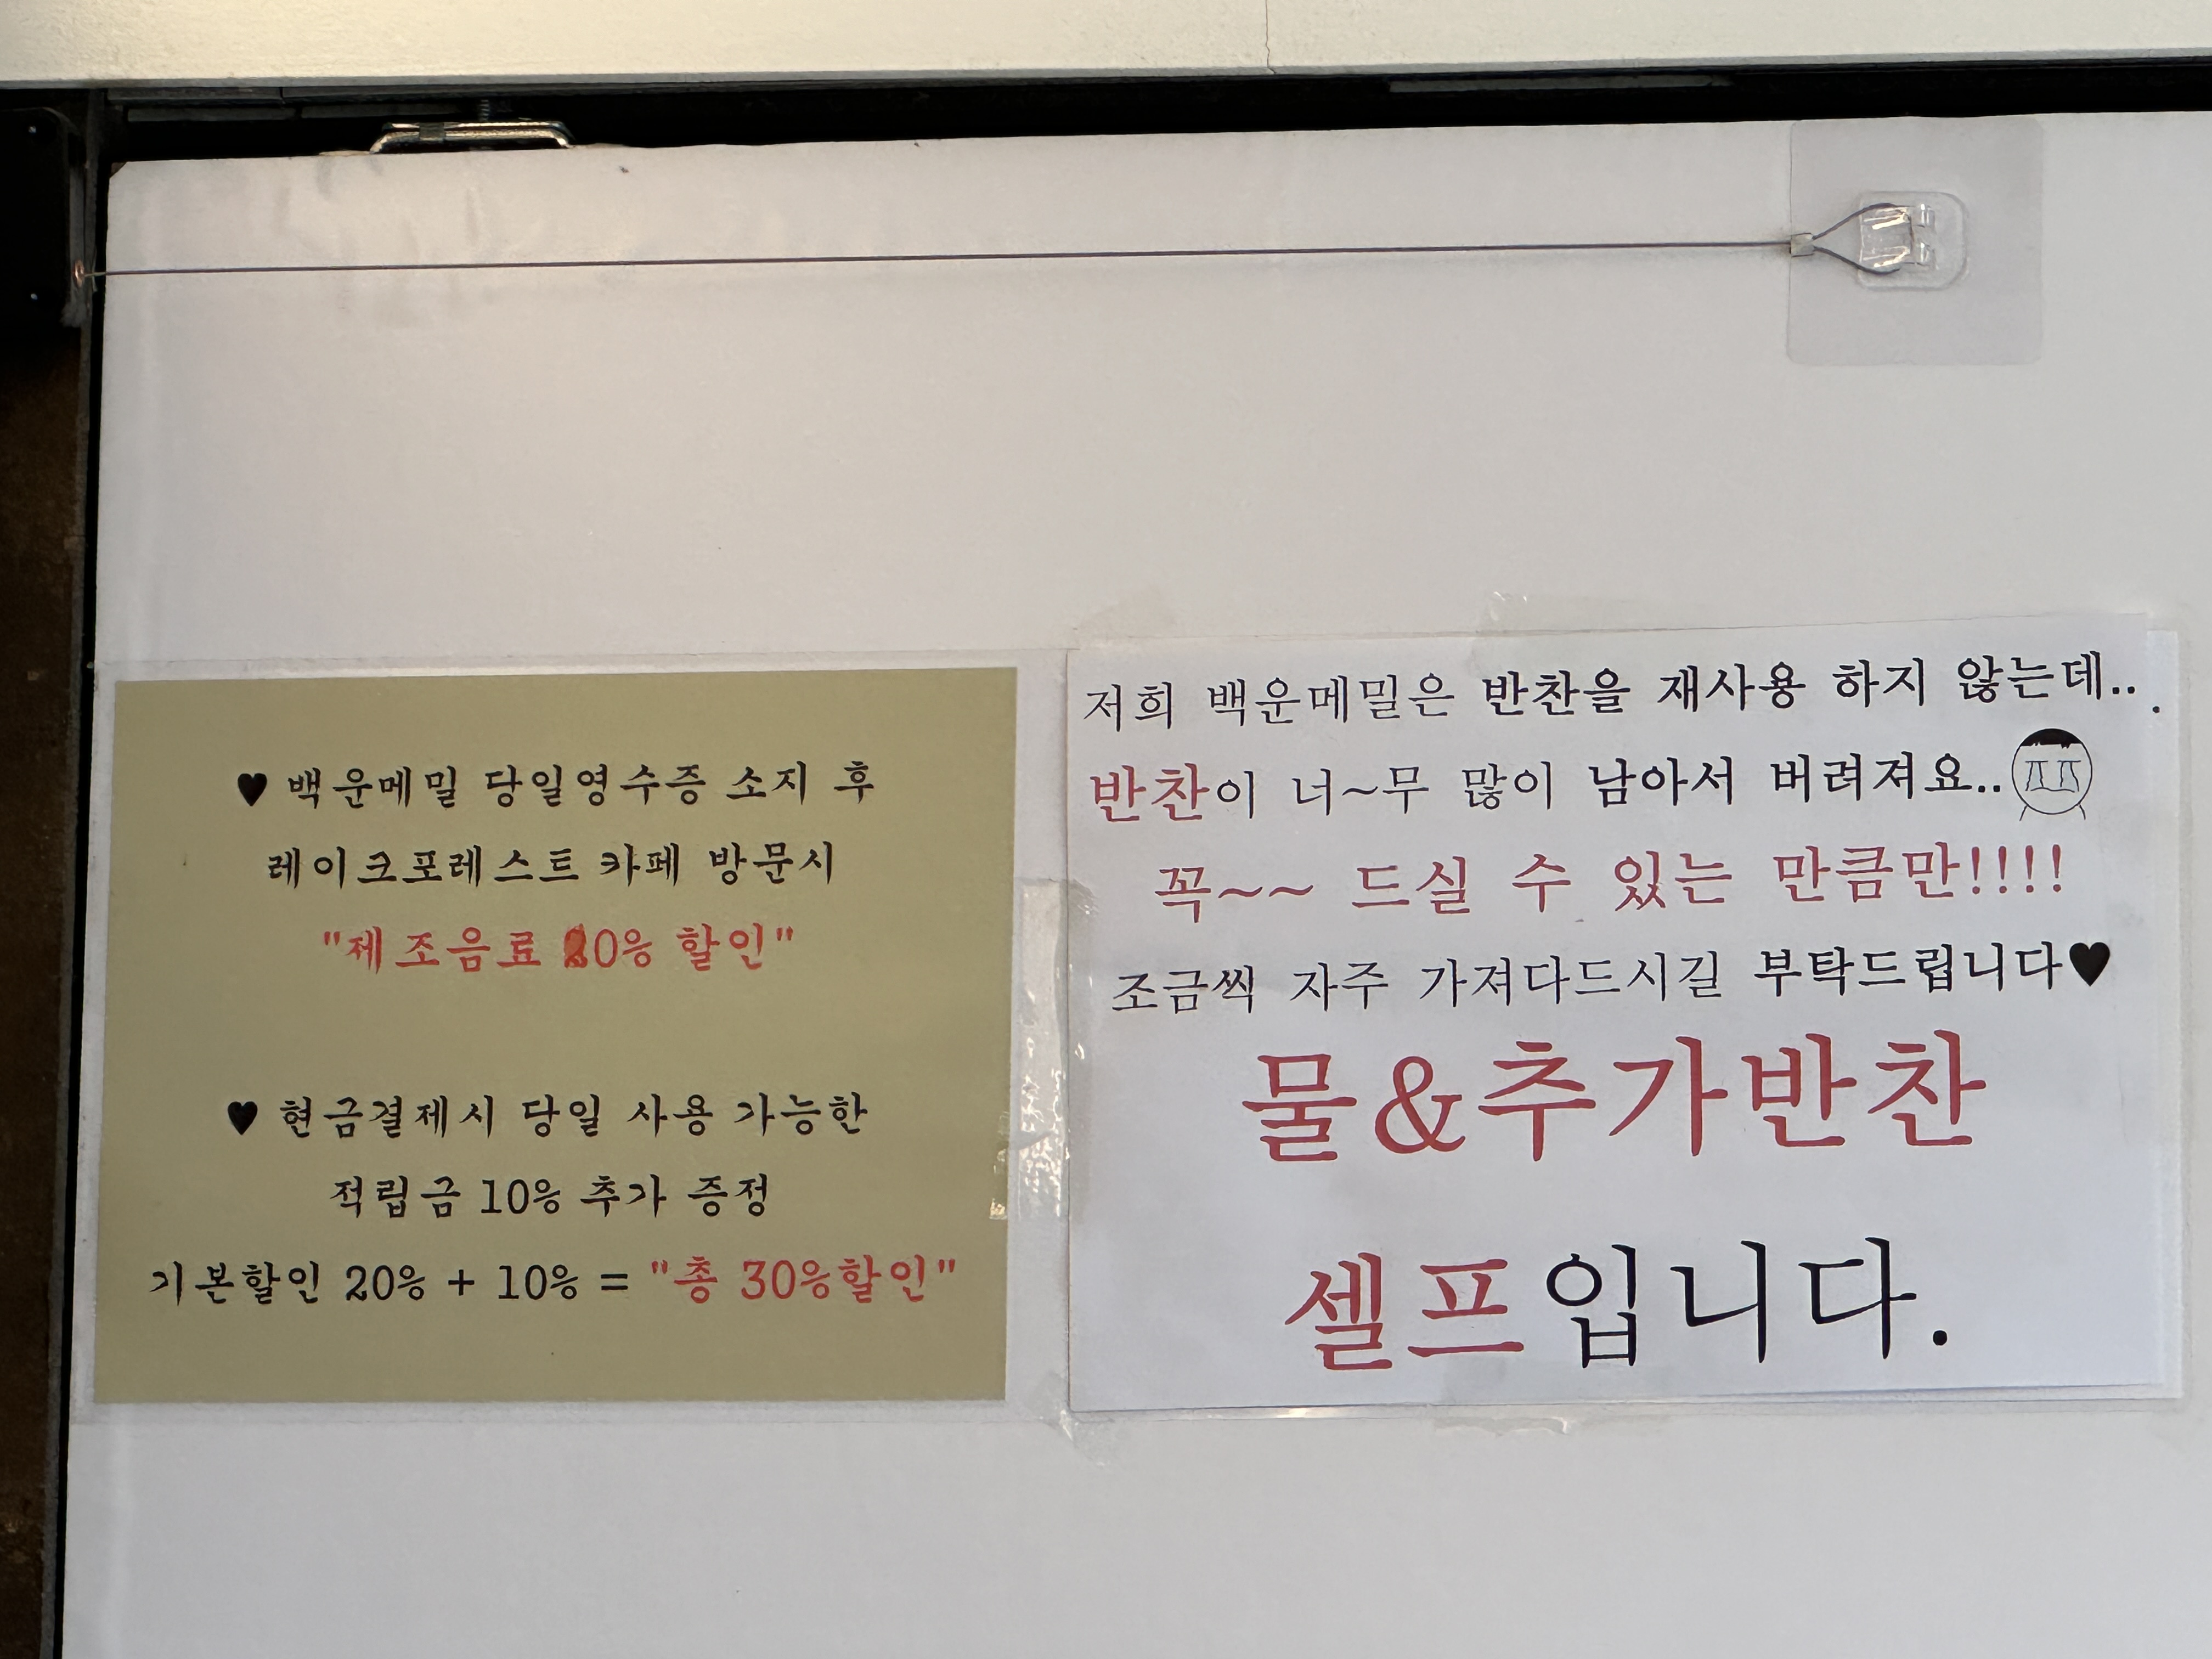 ♥ 백운메밀 당일영수증 소지 후
레이크포레스트 카페 방문시
"제조음료 20% 할인"
♥ 현금결제시 당일 사용 가능한
적립금 10% 추가 증정
기본할인 20% + 10% = "총 30%할인"
저희 백운메밀은 반찬을 재사용 하지 않는데...
반찬이 너~무 많이 남아서 버려져요..
꼭~~ 드실 수 있는 만큼만!!!!
조금씩 자주 가져다드시길 부탁드립니다♥
물&추가반찬
셀프입니다.